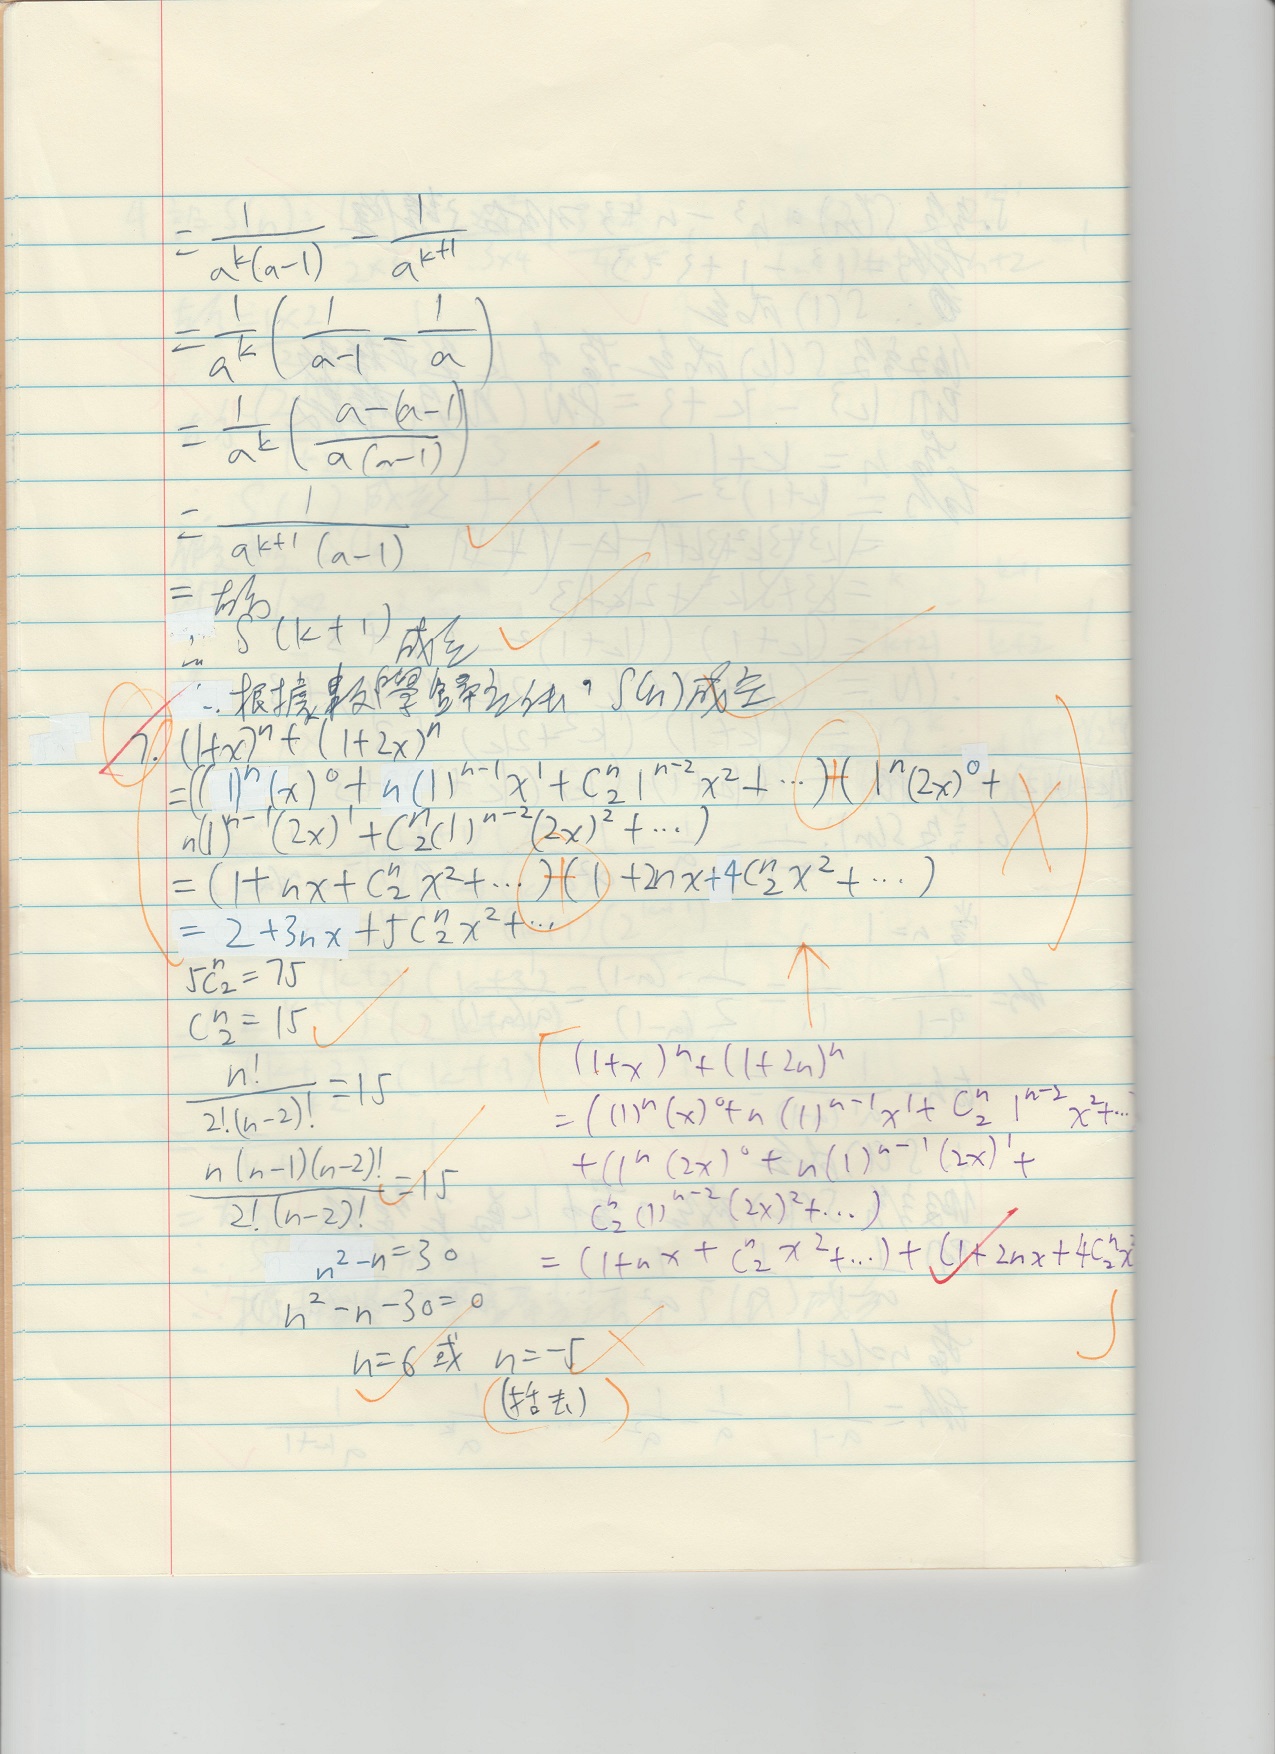 = 1/(a^k(a-1)) - 1/a^(k+1)
= 1/a^k (1/(a-1) - 1/a)
= 1/a^k ((a-(a-1))/(a(a-1)))
= 1/(a^(k+1)(a-1))
= 右
∴ S(k+1)成立
∴ 根據數學歸納法，S(n)成立
7. (1+x)^n + (1+2x)^n
= ((1)^n(x)^0 + n(1)^(n-1)x^1 + C^n_2 1^(n-2)x^2 + …) + (1^n(2x)^0 +
n(1)^(n-1)(2x)^1 + C^n_2(1)^(n-2)(2x)^2 + …)
= (1+nx+C^n_2 x^2+…) + (1+2nx+4C^n_2 x^2+…)
= 2+3nx+5C^n_2 x^2+…
5C^n_2 = 75
C^n_2 = 15
n!/(2!(n-2)!) = 15
n(n-1)(n-2)!/(2!(n-2)!) = 15
n^2-n=30
n^2-n-30=0
n=6 或 n=-5
(捨去)
(1+x)^n+(1+2n)^n
= ((1)^n(x)^0+n(1)^(n-1)x^1+C^n_2 1^(n-2)x^2+…
+(1^n(2x)^0+n(1)^(n-1)(2x)^1+
C^n_2(1)^(n-2)(2x)^2+…)
= (1+nx+C^n_2 x^2+…)+(1+2nx+4C^n_2 x^2